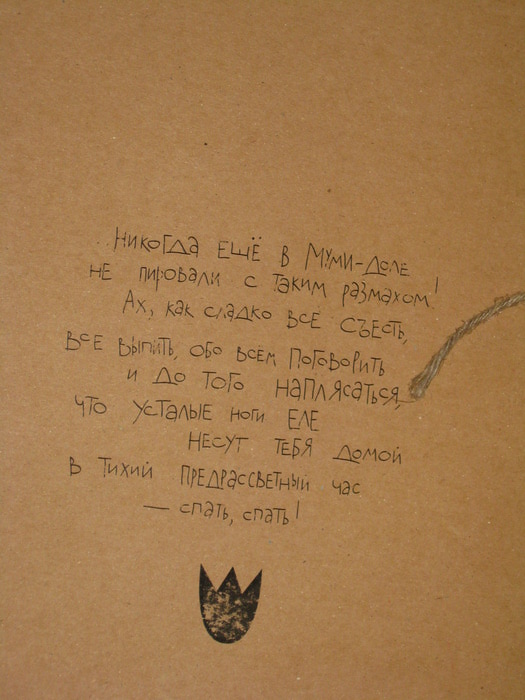 ...Никогда ещё в Муми-доле
не пировали с таким размахом!
Ах, как сладко всё съесть,
всё выпить, обо всём поговорить
и до того наплясаться,
что усталые ноги еле
несут тебя домой
в тихий предрассветный час
— спать, спать!